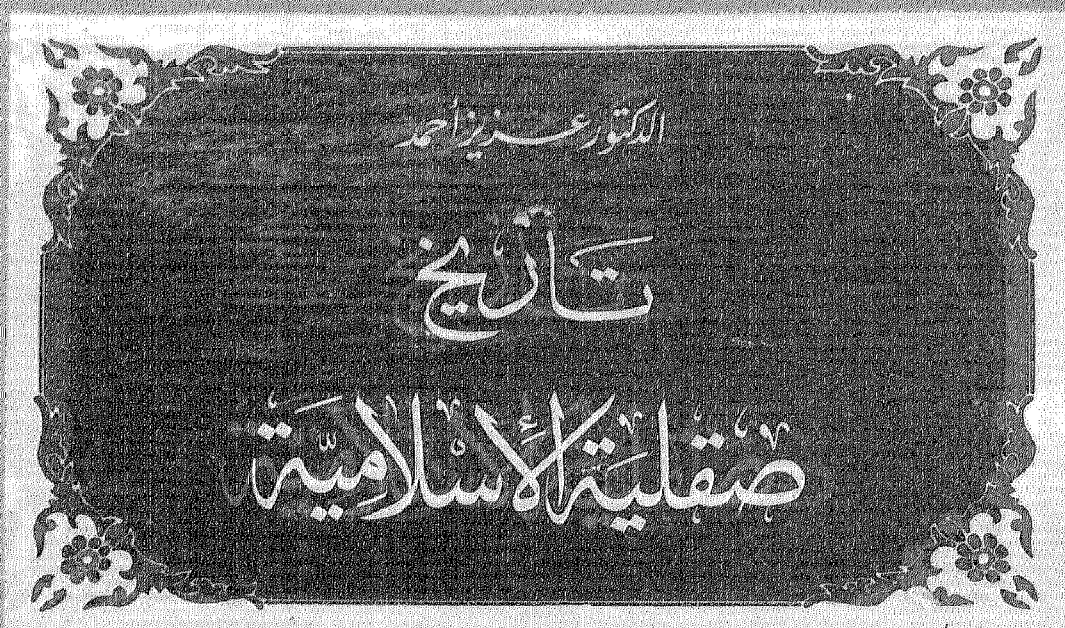 الدكتور عزيز أحمد
تاريخ
صقلية الأسلامية